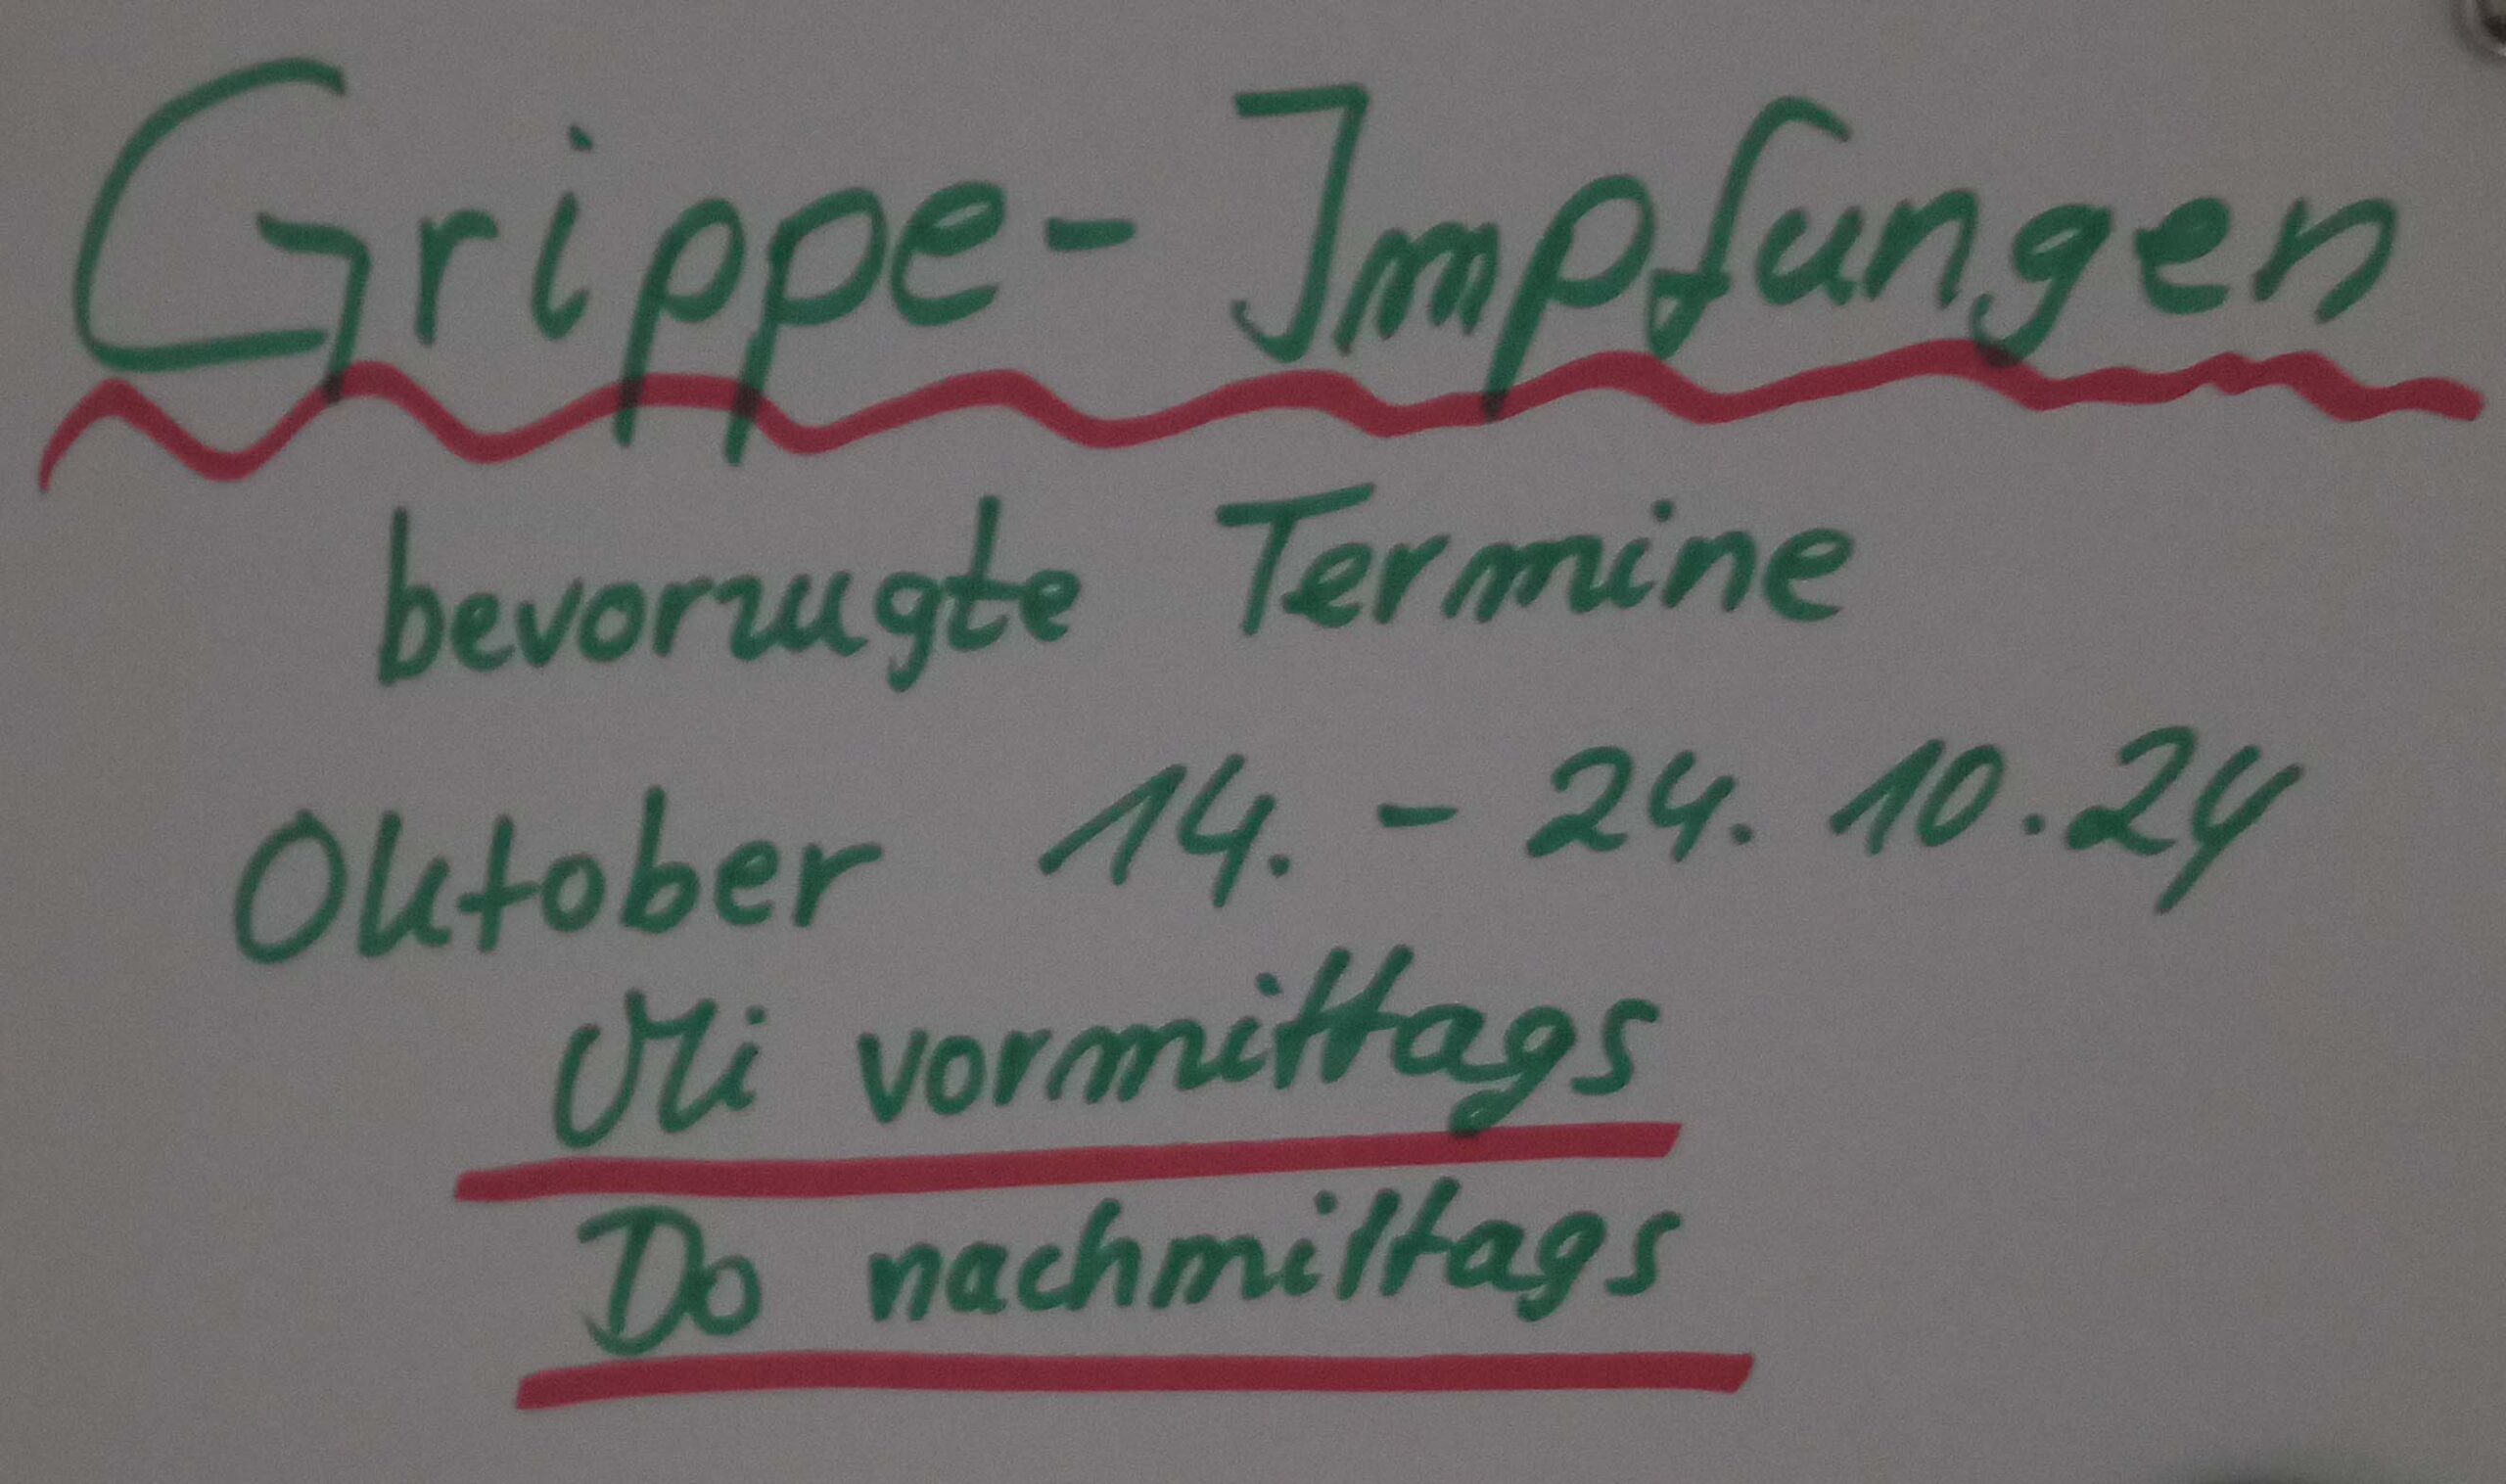 Grippe-Impfungen
bevorzugte Termine
Oktober 14. - 24. 10. 24
Mi vormittags
Do nachmittags